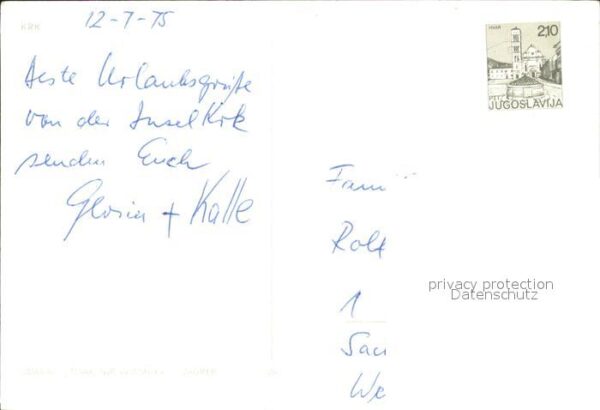 KRK
12-7-75
HVAR
2,10
JUGOSLAVIJA
Beste Urlaubsgrüße
von der Insel Krk
senden Euch
Gloria + Kalle
Fam
Rolf
1
privacy protection
Datenschutz
ZAGREB